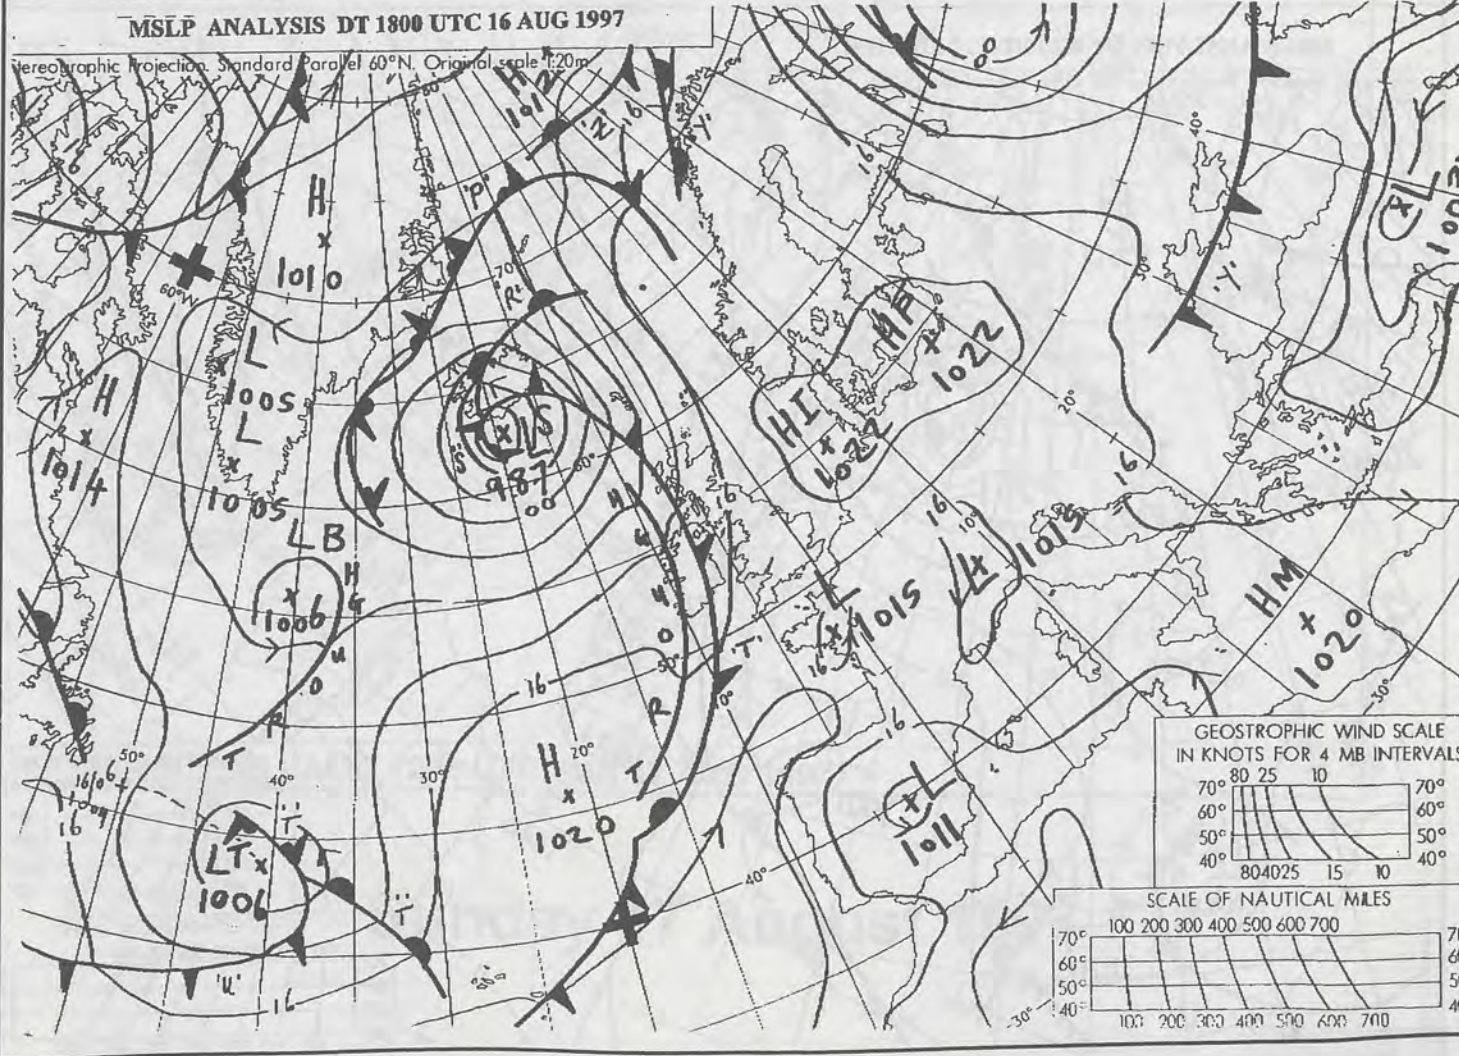 MSLP ANALYSIS DT 1800 UTC 16 AUG 1997
Stereographic Projection. Standard Parallel 60°N. Original scale 1:20m
H
1012
'Z'
16
'Y'
0
16
40°
16
H
1010
'P'
70°
'R'
60°W
L
1005
L
1005
H
1014
LB
1006
LS
987
00
'S'
60°
HP
1022
HI
1022
L
1003
'Y'
30°
20°
16
16
10°
L
1015
L
1015
16
16
HM
1020
30°
H G U O R T
H G U O R T
50°
'T'
0°
16
H
1020
20°
30°
40°
50°
16/06
1004
16
'T'
LT
1006
'T'
'U'
16
16
L
1011
40°
30°
GEOSTROPHIC WIND SCALE
IN KNOTS FOR 4 MB INTERVALS
80 25 10
70° 70°
60° 60°
50° 50°
40° 40°
80 40 25 15 10
SCALE OF NAUTICAL MILES
100 200 300 400 500 600 700
70°
60°
50°
40°
100 200 300 400 500 600 700